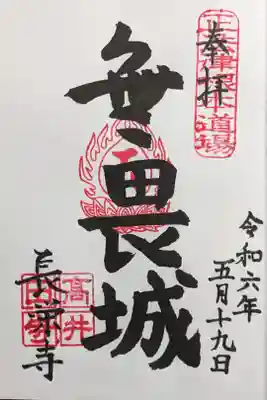 奉拝
無畏城
令和六年
五月十九日
長栄寺
高井